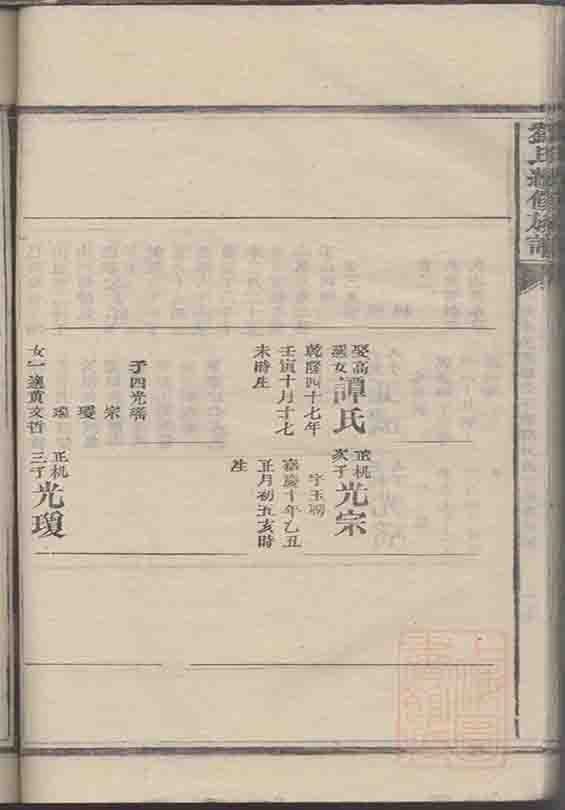 娶高
選女
譚氏
乾隆四十七年
壬寅十月十七
未時生
子四光瑤
宗
瓊
女一適黃文哲
正机
次子
光宗
字玉
嘉慶十年乙丑
正月初五亥時
生
正机
三子
光瓊